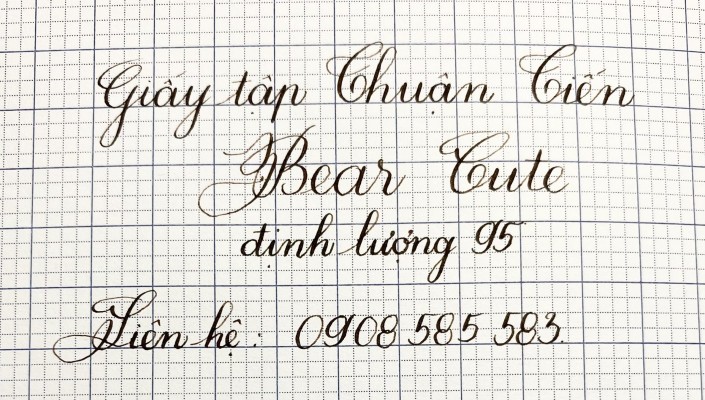 Giấy tập Chuận Tiến
Bear Cute
định lượng 95
Liên hệ: 0908 585 583.